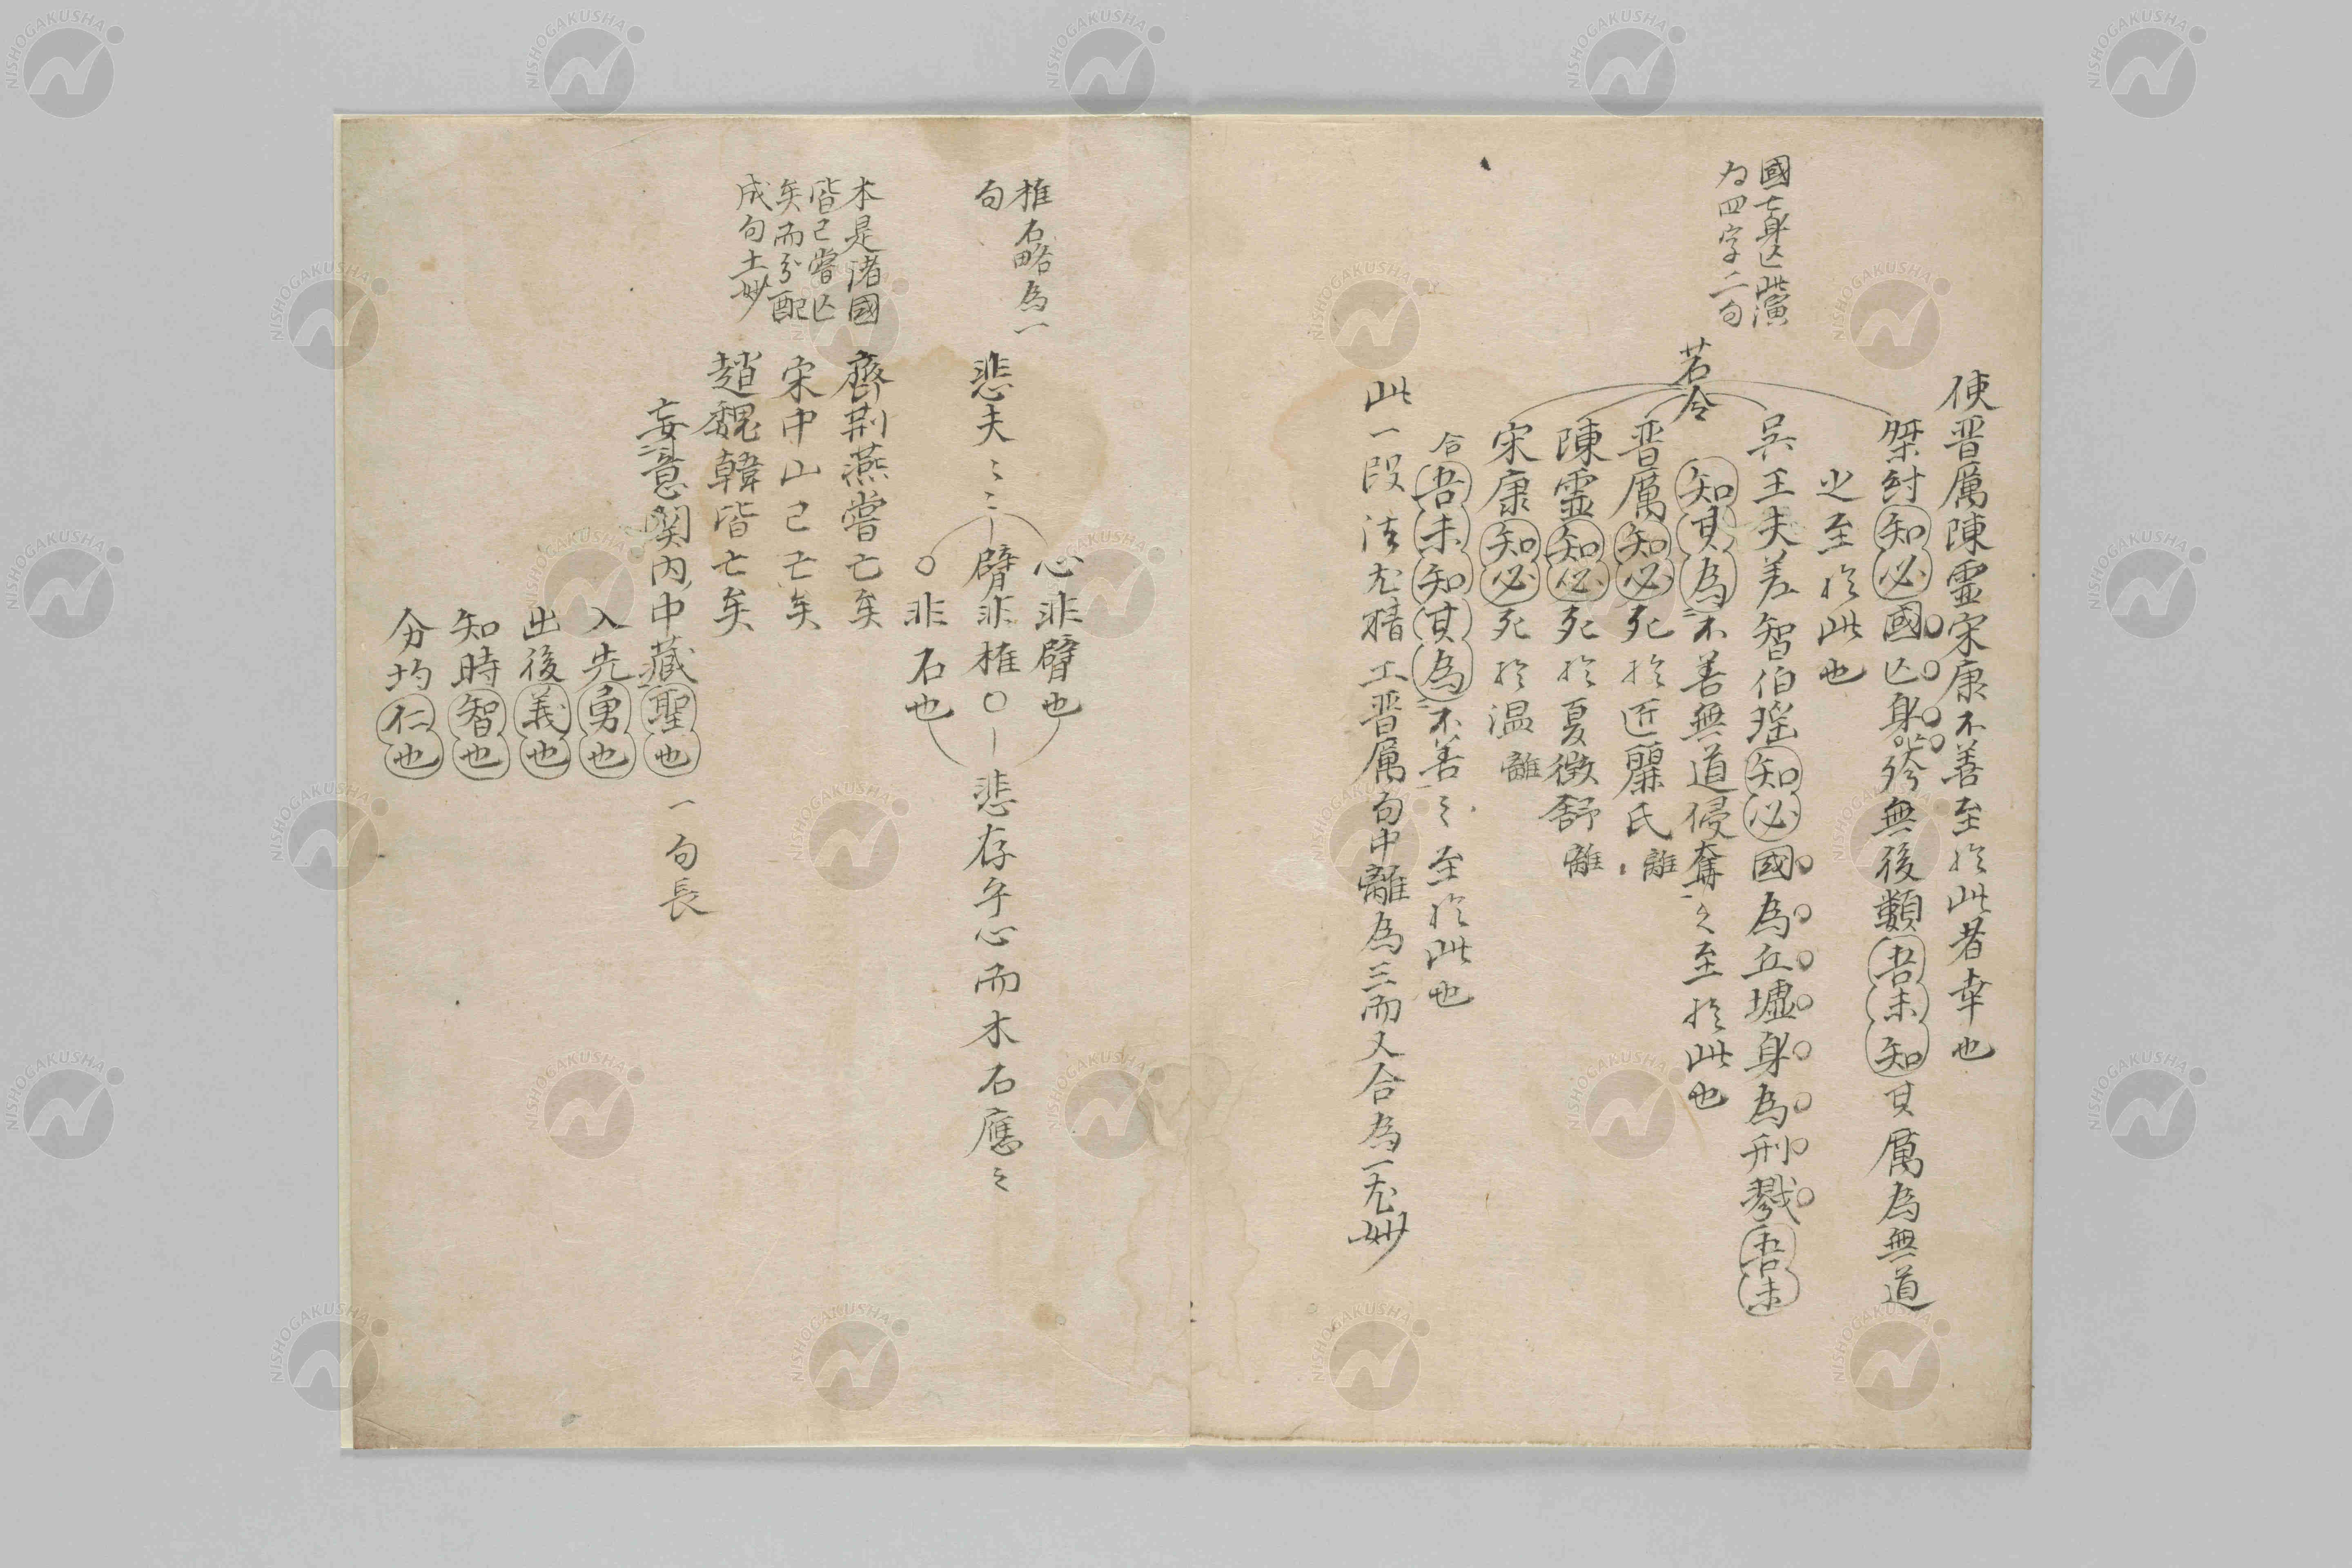 使晋厲陳霊宋康不善至於此者幸也
國亡身亾此演
为四字二句
若令
桀紂知必國亾身殄無後類吾未知其厲為無道
之至於此也
呉王夫差智伯瑶知必國為丘墟身為刑戮吾未
知其為不善無道侵奪之至於此也
晋厲知必死於匠麗氏離
陳霊知必死於夏徴舒離
宋康知必死於温離
合吾未知其為不善之至於此也
此一段法尤精工晋厲句中離為三而又合為一尤妙
椎石略為一
句
心非臂也
悲夫〻〻臂非椎〇悲存乎心而木石應之
〇非石也
本是諸國
皆已嘗亾
矣而分配
成句士妙
齊荆燕嘗亡矣
宋中山已亡矣
趙魏韓皆亡矣
妄意関内中藏聖也一句長
入先勇也
出後義也
知時智也
分均仁也
NISHOGAKUSHA